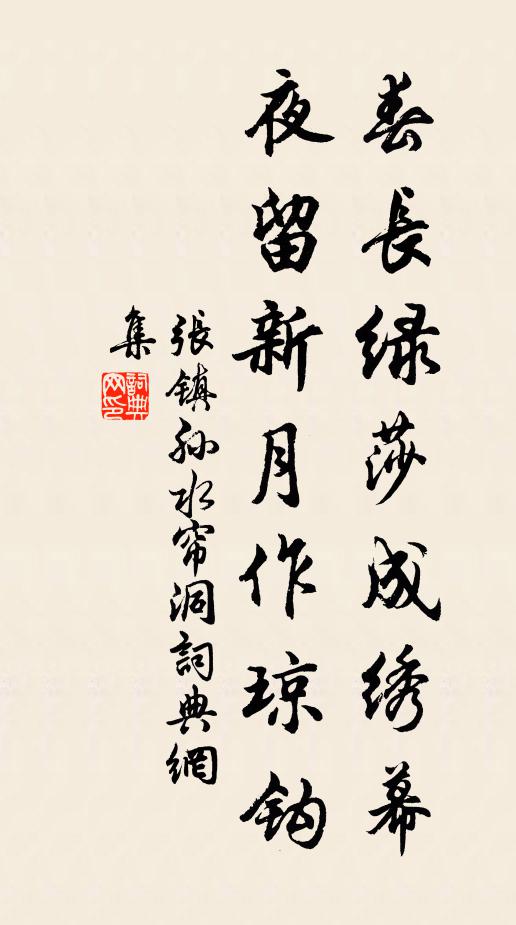 春長绿莎成绣幕
夜留新月作琼钩
張鎮孙水帘洞詞典網
集
詞典网印